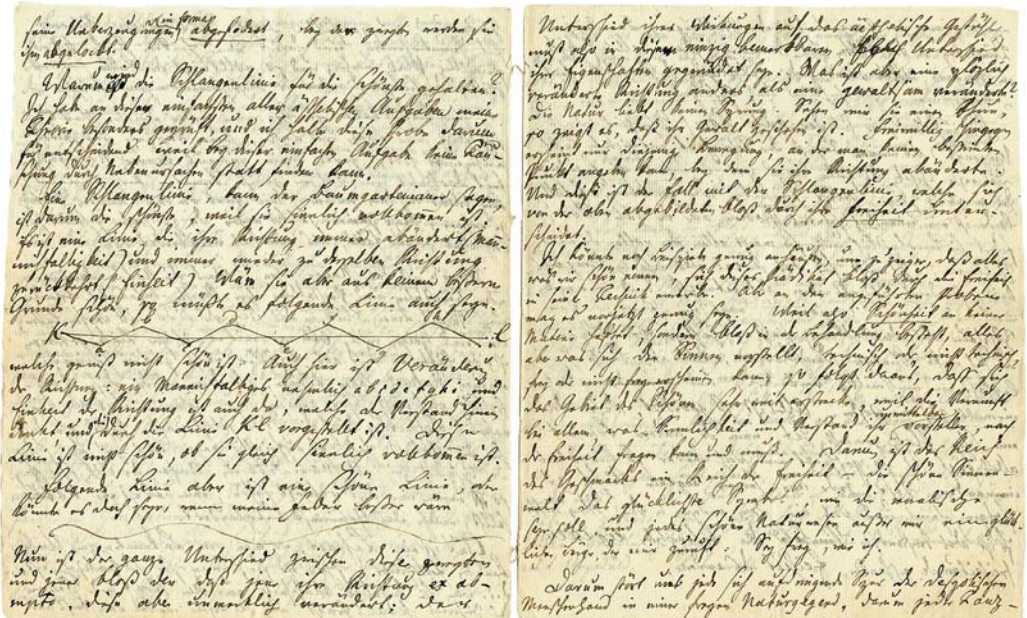 seine Ueberzeugungen abgefodert, bey der zweyten werden sie
ihm abgelockt.
Warum wird die Schlangenlinie für die schönste gehalten?
Ich habe an dieser einfachsten aller ästhetischen Aufgaben meine
Theorie besonders geprüft, und ich halte diese Probe darum
für entscheidend weil bey dieser einfachen Aufgabe keine Täu-
schung durch Nebenursachen statt finden kann.
Eine Schlangenlinie, kann der Baumgartenianer sagen,
ist darum die schönste, weil sie sinnlich vollkommen ist.
Es ist eine Linie die ihre Richtung immer abändert (Man-
nichfaltigkeit) und immer wieder zu derselben Richtung
zurückkehrt (Einheit) Wäre sie aber aus keinem bessern
Grunde schön, so müßte es folgende Linie auch seyn.
welche gewiß nicht schön ist. Auch hier ist Veränderung
der Richtung; ein Mannichfaltiges nehmlich a b c d e f g h i und
Einheit der Richtung ist auch da, welche der Verstand hinein
denkt und die durch die Linie K L vorgestellt ist. Diese
Linie ist nicht schön, ob sie gleich sinnlich vollkommen ist.
Folgende Linie aber ist eine schöne Linie, oder
könnte es doch seyn, wenn meine Feder besser wäre
Nun ist der ganze Unterschied zwischen dieser zweyten
und jener bloß der daß jene ihre Richtung ex ab-
rupto, diese aber unmerklich verändert; der
Unterschied ihrer Wirkungen auf das ästhetische Gefühl
muß also in diesem einzig bemerkbaren Unterschied
ihrer Eigenschaften gegründet seyn. Was ist aber eine plözlich
veränderte Richtung anders als eine gewaltsam veränderte?
Die Natur liebt keinen Sprung. Sehen wir sie einen thun,
so zeigt es, daß ihr Gewalt geschehen ist. Freiwillig hingegen
erscheint nur diejenige Bewegung, an der man keinen bestimmten
Punkt angeben kann, bey dem sie ihre Richtung abänderte.
Und dieß ist der Fall mit der Schlangenlinie, welche sich
von der oben abgebildeten bloß durch ihre Freiheit unter-
scheidet.
Ich könnte noch Beispiele genug anhäufen, um zu zeigen, daß alles
was wir schön nennen, sich dieses Prädikat bloß durch die Freiheit
in seiner Technik erwerbe. Aber an den angeführten Proben
mag es vorjezt genug seyn. Weil also Schönheit an keiner
Materie haftet, sondern bloß in der Behandlung besteht, alles
aber was sich den Sinnen vorstellt, technisch oder nicht technisch,
frey oder nicht frey erscheinen kann; so folgt daraus, daß sich
das Gebiet des Schönen sehr weit erstrecke, weil die Vernunft
bei allem was Sinnlichkeit und Verstand ihr unmittelbar vorstellen, nach
der Freiheit fragen kann und muß. Darum ist das Reich
des Geschmacks ein Reich der Freiheit – die schöne Sinnen-
welt das glücklichste Symbol, wie die moralische
seyn soll, und jedes schöne Naturwesen außer mir ein glück-
licher Bürge, der mir zuruft: Sey frey, wie ich.
Darum stört uns jede sich aufdringende Spur der despotischen
Menschenhand in einer freyen Naturgegend, darum jeder Tanz-